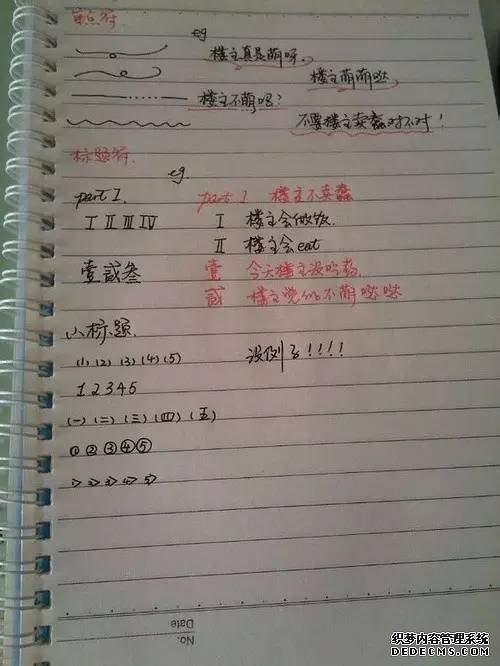 重点符
eg
楼主真是萌呀。
楼主萌萌哒
楼主不萌吗?
不要楼主卖蠢对不对!
标题符.
eg.
part I. part 1 楼主不卖蠢
I II III IV I 楼主会做饭
II 楼主会eat
壹贰叁 壹 今天楼主没吃药
贰 楼主觉 不萌哒哒
小标题.
(1) (2) (3) (4) (5) 没例了!!!!
1 2 3 4 5
(一) (二) (三) (四) (五)
① ② ③ ④ ⑤
1> 2> 3> 4> 5>
No.
Date
织梦内容管理系统
DEDECMS.COM